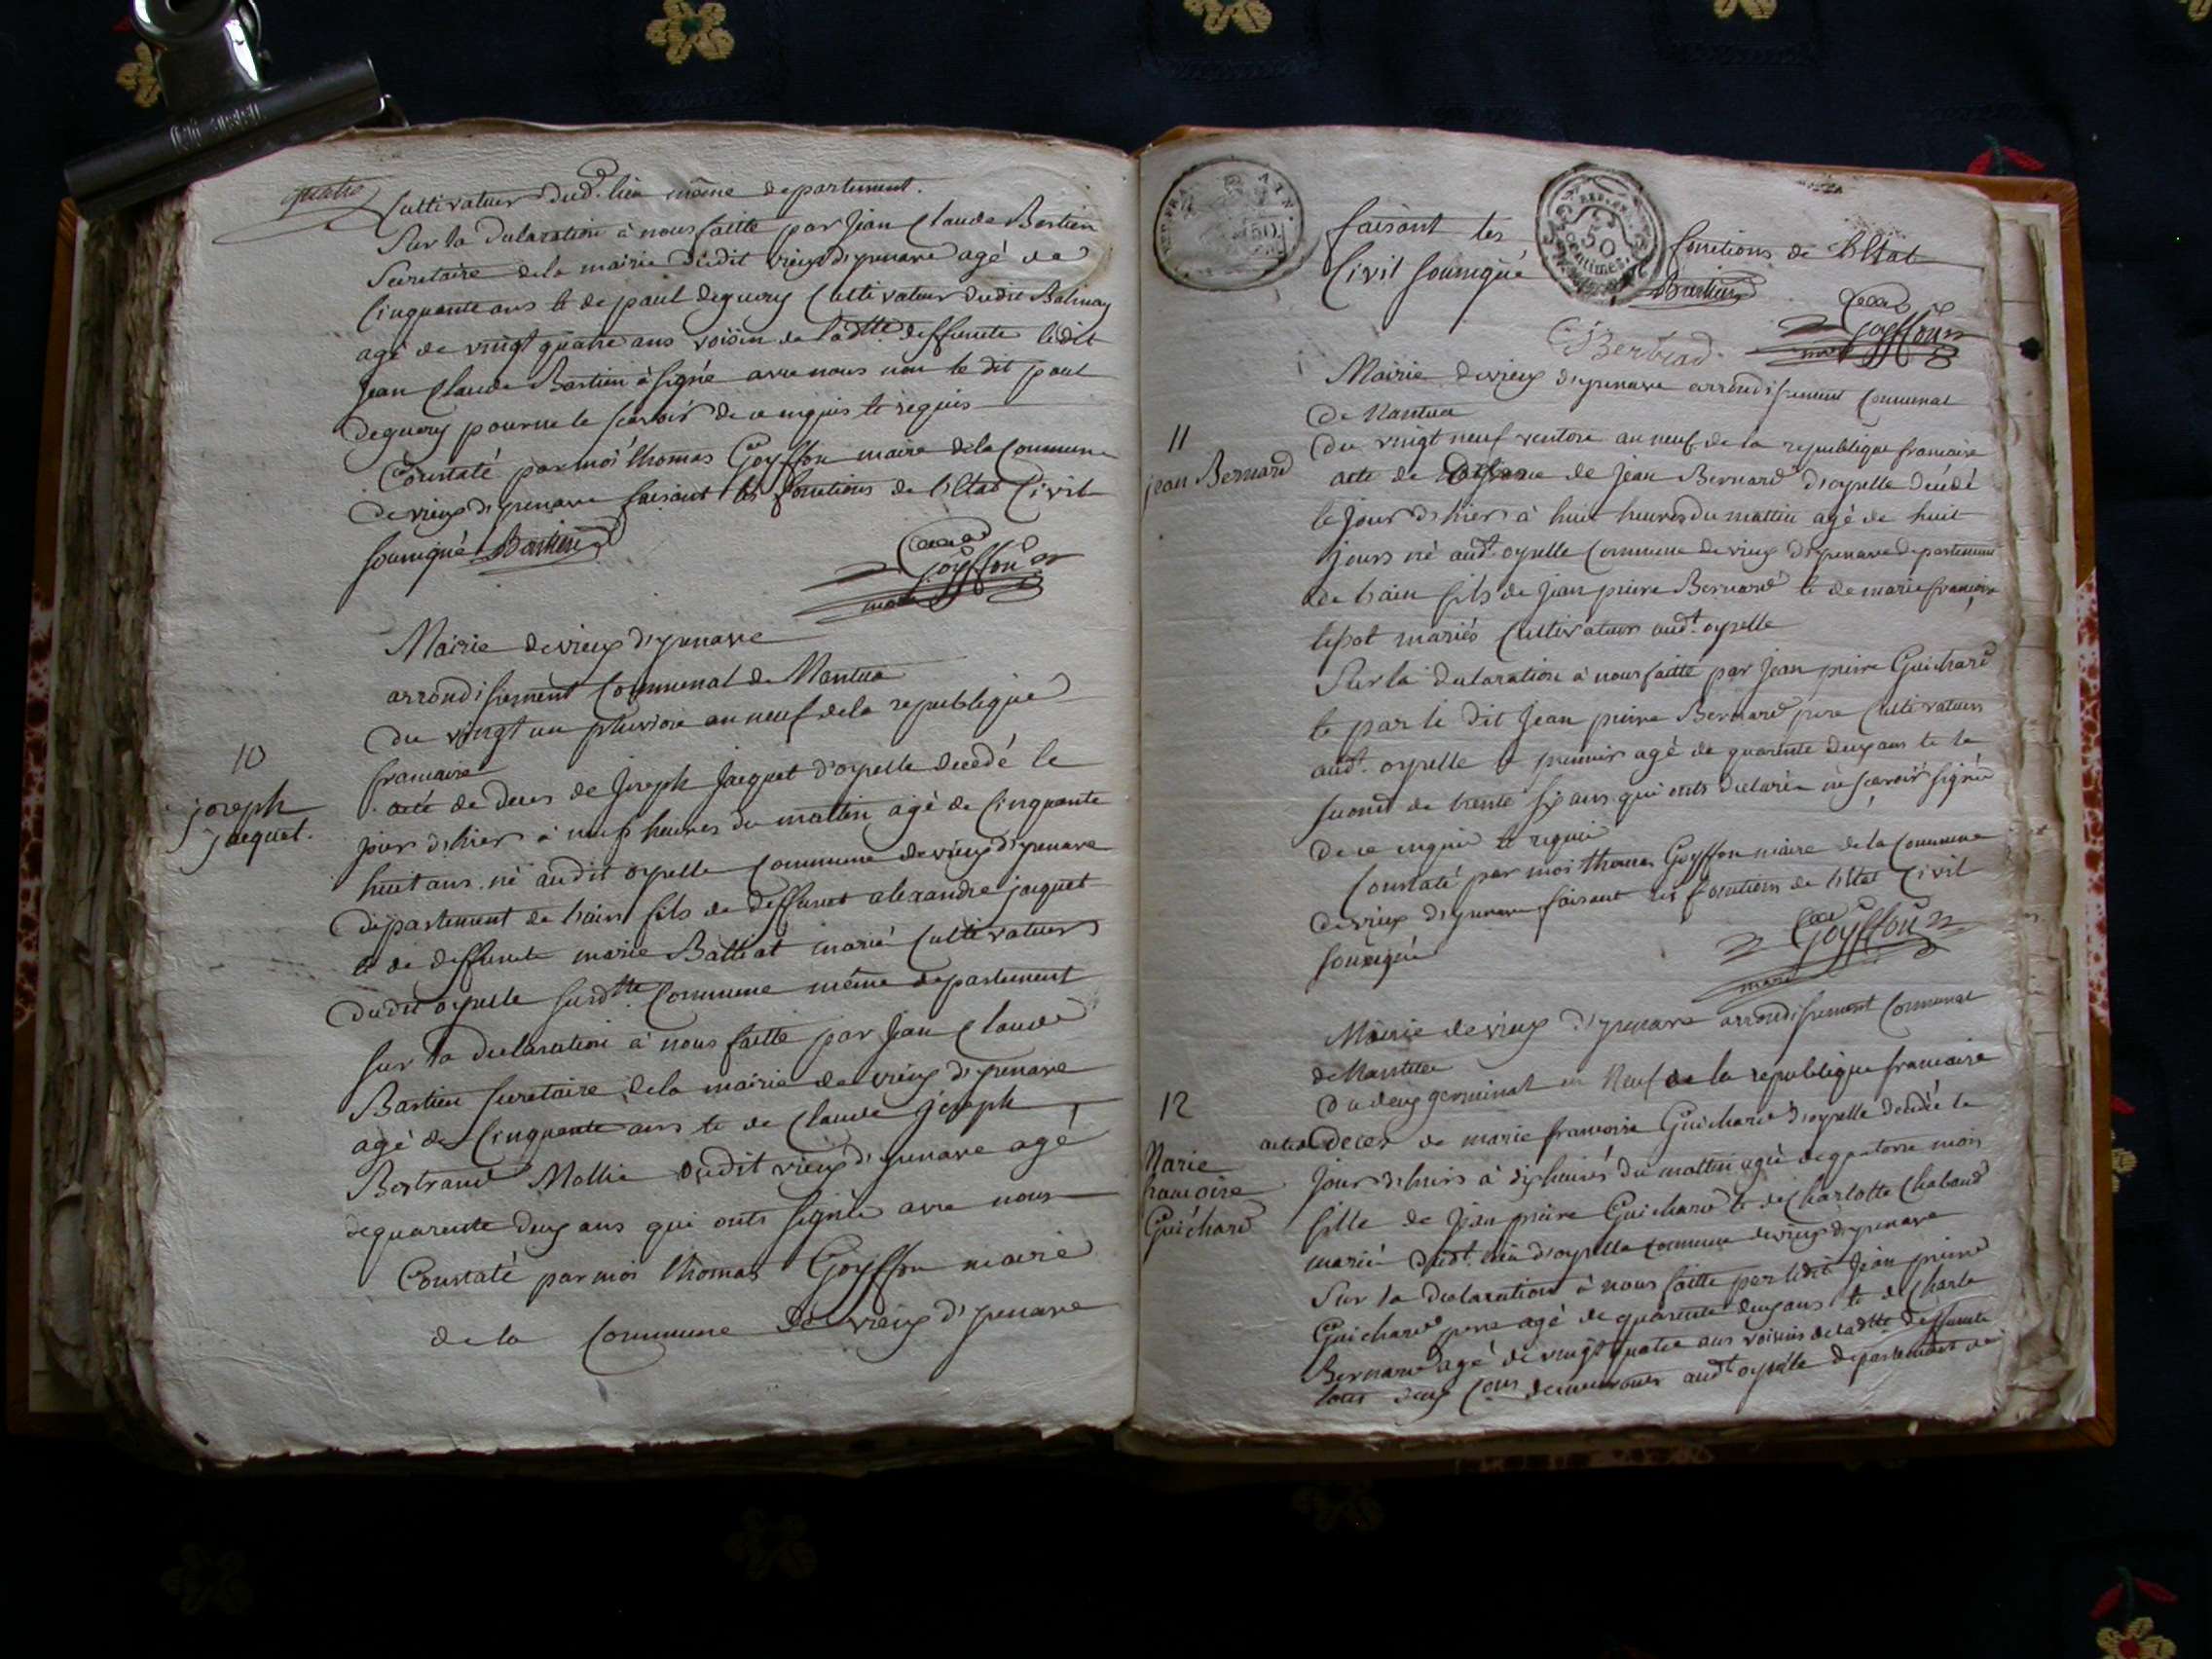 quatre
Cultivateur dud. lieu même departement.
Sur la declaration à nous faitte par Jean Claude Bastien
Secretaire de la mairie dudit vieux d'yzenave agé de
Cinquante ans et de paul deguery Cultivateur dudit Balmay
agé de vingt quatre ans voisin de ladtte. deffunte ledit
Jean Claude Bastien à signé avec nous non le dit paul
deguery pour ne le scavoir de ce enquis et requis
Constaté par moi thomas Goyffon maire de la Commune
de vieux d'yzenave faisant les fonctions de l'Etat Civil
soussigné Bastien
Goyffon
maire
Mairie de vieux d'yzenave
arrondissement Communal de Nantua
Du vingt un pluviose an neuf de la republique
francaise
10
joseph
jacquet.
acte de deces de Joseph Jacquet d'oyselle decedé le
jour d'hier à neuf heures du mattin agé de Cinquante
huit ans né audit oyselle Commune de vieux d'yzenave
departement de l'ain fils de deffunt alexandre jacquet
et de deffunte marie Balliat marié Cultivateurs
dudit oyselle susdtte. Commune même departement
Sur la declaration à nous faitte par Jean Claude
Bastien Secretaire de la mairie de vieux d'yzenave
agé de Cinquante ans et de Claude joseph
Bertrand Mollie dudit vieux d'yzenave agé
de quarente deux ans qui onts signé avec nous
Constaté par moi thomas Goyffon maire
de la Commune de vieux d'yzenave
50
faisant les fonctions de l'Etat
50
centimes
Civil soussigné
Bastien
Bertrad
Goyffon
maire
Mairie de vieux d'yzenave arrondissement Communal
de Nantua
11
jean Bernard
Du vingt neuf ventose an neuf de la republique francaise
acte de de Jean Bernard d'oyselle decedé
le jour d'hier à huit heures du mattin agé de huit
jours né audt. oyselle Commune de vieux d'yzenave departement
de l'ain fils de Jean pierre Bernard et de marie francoise
mariés Cultivateurs audt. oyselle
Sur la declaration à nous faitte par Jean pierre Guichard
et par le dit Jean pierre Bernard pere Cultivateurs
audt. oyselle le premier agé de quarente deux ans et le
second de trente six ans qui onts declarés ne scavoir signer
de ce enquis et requis
Constaté par moi thomas Goyffon maire de la Commune
de vieux d'yzenave faisant les fonctions de l'Etat Civil
soussigné
Goyffon
maire
Mairie de vieux d'yzenave arrondissement Communal
de Nantua
12
Marie
francoise
Guichard
Du deux germinal an Neuf de la republique francaise
acte de deces de marie francoise Guichard d'oyselle decedée le
jour d'hiers à dix heures du mattin agée de quatorse mois
fille de Jean pierre Guichard et de Charlotte Chaband
marié dudt. lieu d'oyselle commune de vieux d'yzenave
Sur la declaration à nous faitte par ledit Jean pierre
Guichard pere agé de quarente deux ans et de Charle
Bernard agé de vingt quatre ans voisins de ladtte. deffunte
tous deux demeurants audt oyselle departement de